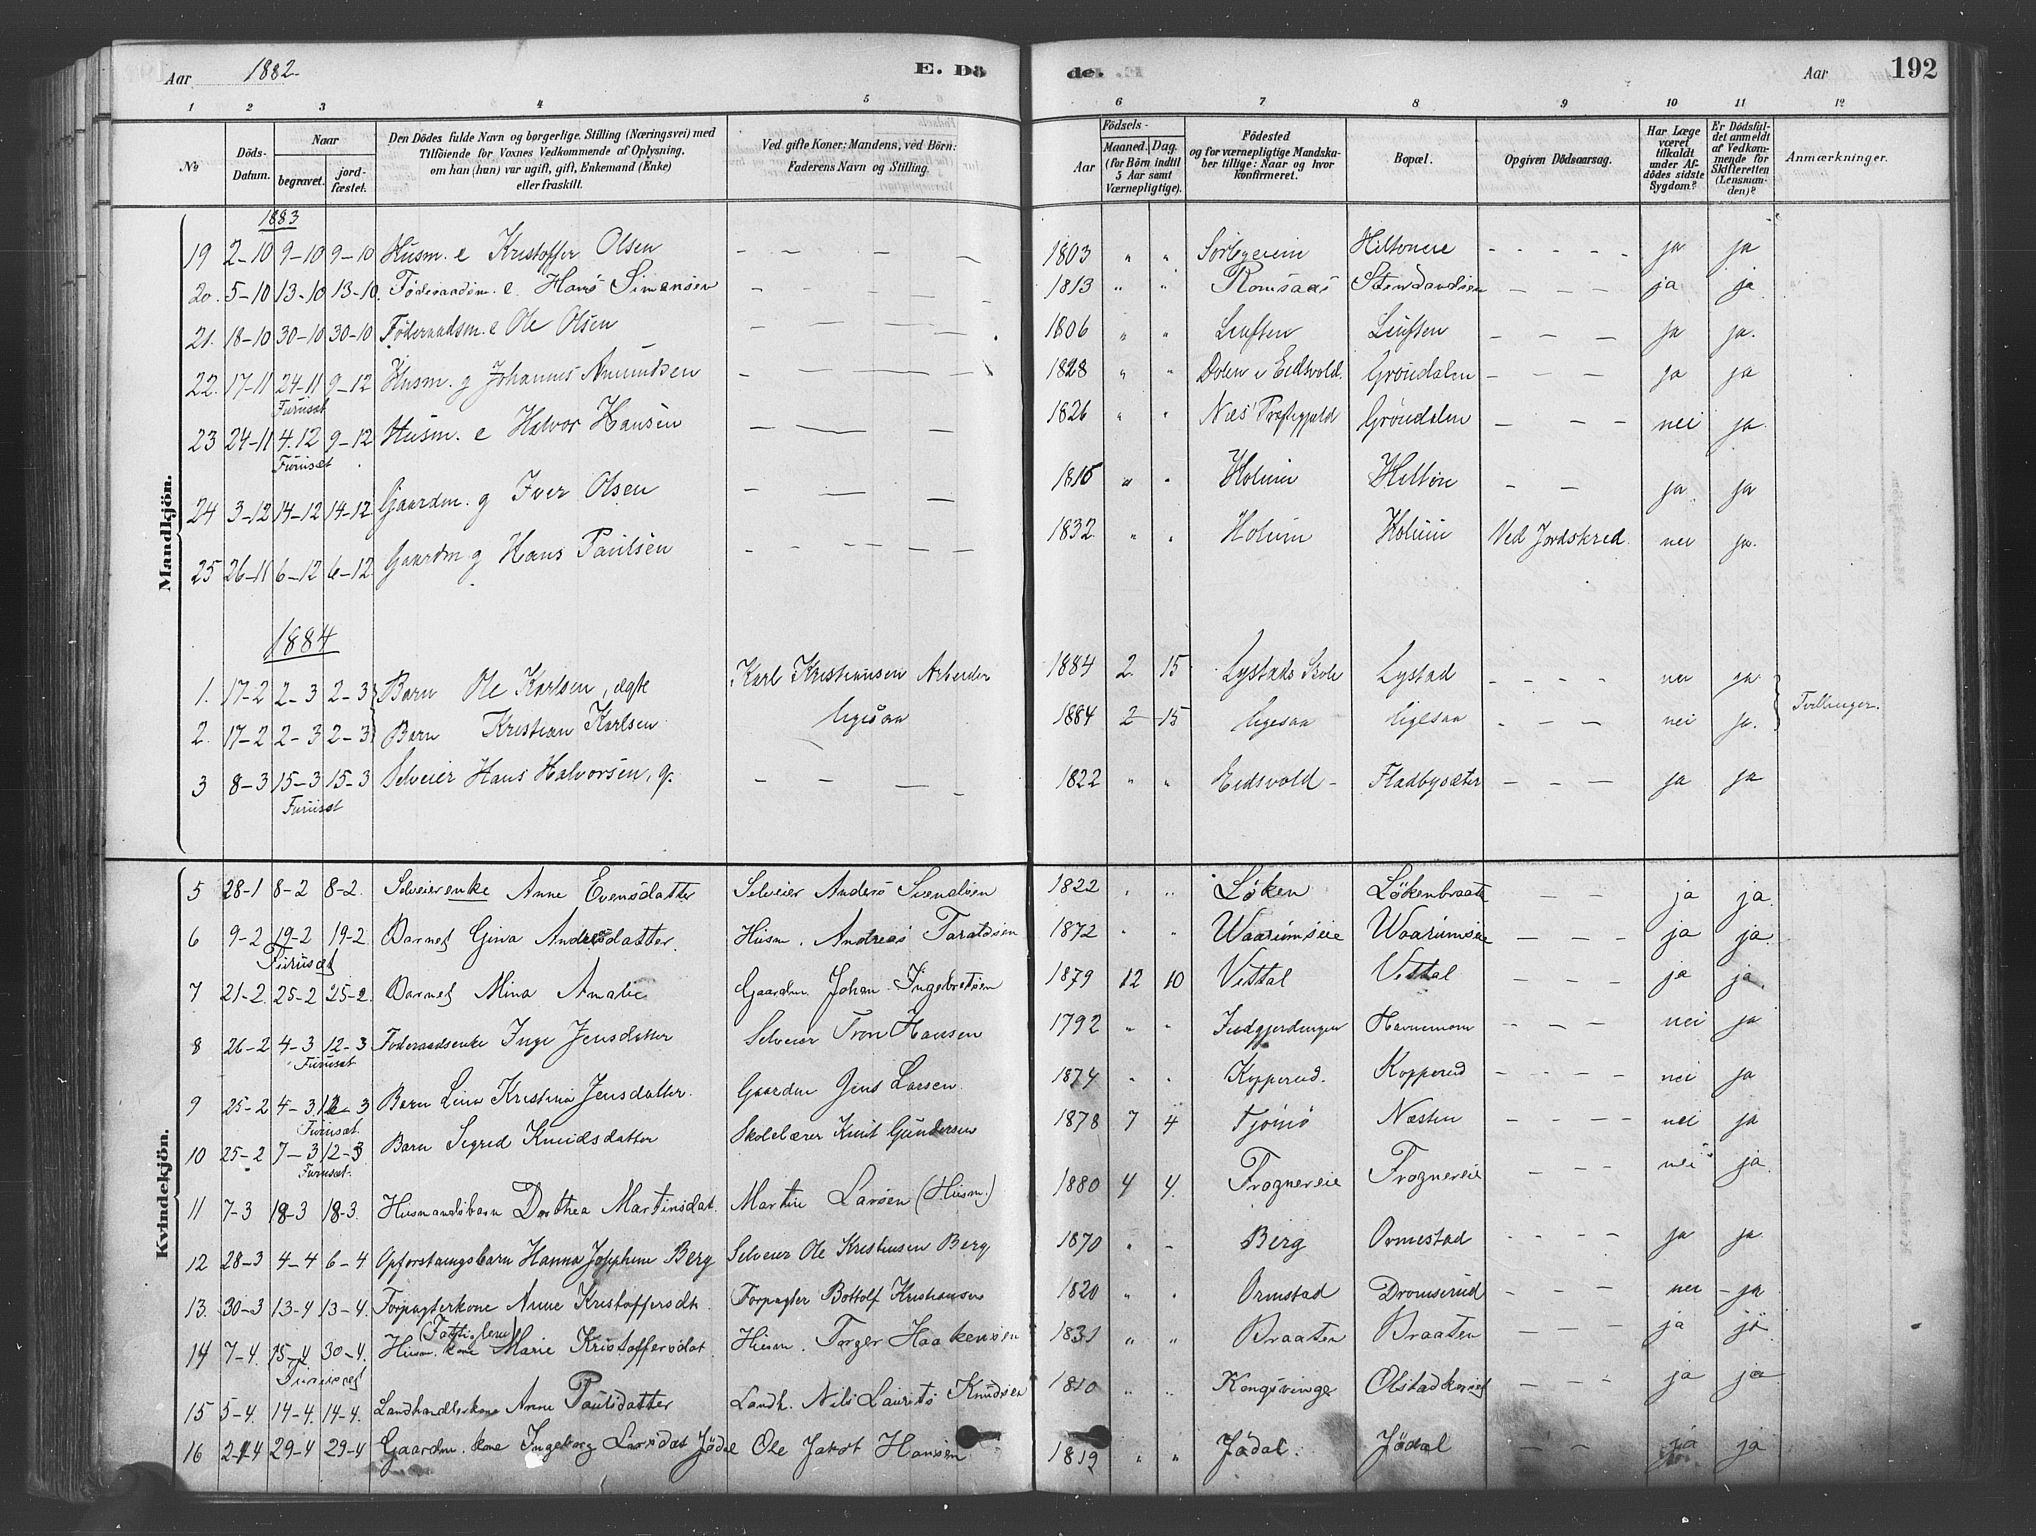 Aar 1882 E. Dö de. Aar 192
1 2 3 4 5 6 7 8 9 10 11 12
No
Döds-Datum.
Naar
begravet.
jord-fæstet.
Den Dödes fulde Navn og borgerlige Stilling (Næringsvei) med
Tilföiende for Voxnes Vedkommende af Oplysning,
om han (hun) var ugift, gift, Enkemand (Enke)
eller fraskilt.
Ved gifte Koner: Mandens, ved Börn:
Faderens Navn og Stilling.
Födsels-
Aar
Maaned. Dag.
(for Börn indtil
5 Aar samt
Værnepligtige).
Födested
og for værnepligtige Mandska-
ber tillige: Naar og hvor
konfirmeret.
Bopæl.
Opgiven Dödsaarsag.
Har Læge
været
tilkaldt
under Af-
dödes sidste
Sygdom?
Er Dödsful-
det anmeldt
af Vedkom-
mende for
Skifteretten
(Lensman-
den)?
Anmærkninger.
Mandkjön.
1883
19 2-10 9-10 9-10 Husm. e Kristoffer Olsen — — — — 1803 " " Hiltoneie - - - - ja ja
20. 5-10 13-10 13-10. Föderaadsm. e. Hans Simensen — — — — 1813 " " Romsaas — — — ja ja
21. 18-10 30-10 30-10 Föderaadsm. e Ole Olsen — — — — 1806 " " Luften Luften — — — ja ja.
22. 17-11 24-11 9-12 Husm. g Johannes Amundsen — — — — 1828 " " Dolen i Eidsvold. Gröndalen — — — ja ja
Furuset
23 24-11 4.12 9-12 Husm. e Halvor Hansen — — — 1826 " " Næs Præstegjeld Gröndalen — — — nei ja.
Furuset
24 3-12 14-12 14-12 Gaardm. g Iver Olsen — — — 1815 " " Holum Hilton — — ja ja
25 26-11 6-12 6-12 Gaardm g Hans Paulsen — — — — — 1832 " " Holum Holum Ved Jordskred. nei ja.
1884
1. 17-2 2-3 2-3 Barn Ole Karlsen, ægte Karl Kristiansen Arbeider 1884 2 15 Lystads Lystad - - - - nei ja
2. 17-2 2-3 2-3 Barn Kristian Karlsen ligesaa 1884 2 15 ligesaa ligesaa - - - nei ja. Tvillinger.
3 8-3 15-3 15-3 Selveier Hans Halvorsen, g. — — — 1822 " " Eidsvold - Fladbysæter — — — ja ja
Furuset
Kvindekjön.
5 28-1 8-2 8-2. Selveierenke Anne Evensdatter Selveier Anders Svendsen 1822 " " Löken Lökenbraate — — ja ja.
6 9-2 19-2 19-2. Barnet Gina Andreasdatter. Husm. Andreas Taraldsen 1872 " " Waarumseie Waarumseie — — — ja ja.
Furuset
7 21-2. 25-2 25-2 Barnet Mina Amalie Gaardm. Johan Ingebretsen 1879 12 10 Vittal Vittal — — — ja ja.
8 26-2 4-3 12-3 Föderaadsenke Inge Jensdatter Selveier Tron Hansen 1792 " " — — — nei ja
Furuset
9 25-2 4-3 12-3 Barn Lina Kristina Jensdatter. Gaardm Jens Larsen. 1874 " " Kopperud. Kopperud - - - - nei ja
Furuset.
10 25-2 7-3 12-3 Barn Sigrid Knudsdatter Skolelærer Knut Gundersen 1878 7 4 Tjömö Næsten - - - nei ja
Furuset.
11 7-3 18-3 18-3. Husmandsbarn Dorthea Martinsdat. Martin Larsen (Husm.) 1880 4 4. Frognereie Frognereie - - - nei ja.
12 28-3 4-4 6-4 Opfostringsbarn Hanna Josephine Berg Selveier Ole Kristiansen Berg 1870 " - Berg Ormestad - - - - ja ja
13. 30-3 13-4 13-4. Forpagterkone Anne Kristoffersdt. Forpagter Bottolf Kristiansen 1820 " " Ormstad Dromserud - - - nei - ja
(Fattiglem)
14 7-4. 15-4 30-4. Husm. kone Marie Kristoffersdat. Husm. Torger Haakensen 1831 " " Braaten Braaten — — — ja ja
Furuset
15 5-4. 14-4. 14-4. Landhandlerkone Anne Paulsdatter Landh. Nils Laurits Knudsen 1810 " " Kongsvinge — — — ja ja
16 21-4 29-4 29-4 Gaardm. kone Ingeborg Larsdat Jödal Ole Jakob Hansen. 1819 " " Jödal. Jödal — — ja ja